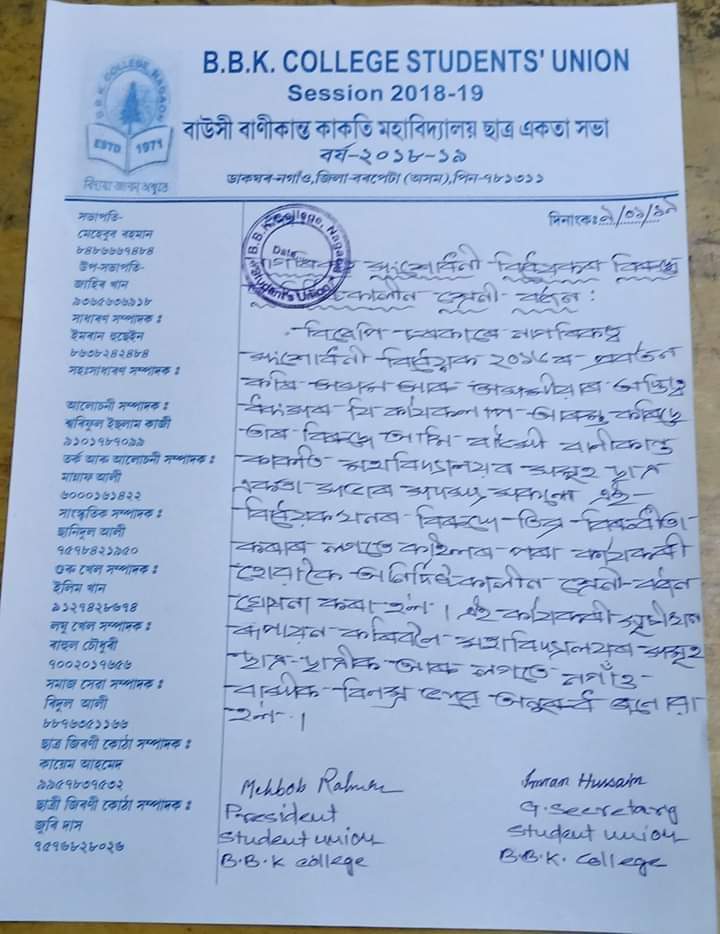 B.B.K. COLLEGE STUDENTS' UNION
Session 2018-19
বাউসী বাণীকান্ত কাকতি মহাবিদ্যালয় ছাত্ৰ একতা সভা
বৰ্ষ-২০১৮-১৯
ডাকঘৰ-নগাঁও,জিলা-বৰপেটা (অসম),পিন-৭৮১৩১১
B.B.K. COLLEGE, NAGAON
ESTD 1971
সভাপতি-
মেহেবুব ৰহমান
৮৪৮৬৬৬৭৪৮৪
উপ-সভাপতি-
জাহিৰ খান
সাধাৰণ সম্পাদক ঃ
ইমৰান হুছেইন
৮৬৩৮২৪২৪৮৪
সহঃসাধাৰণ সম্পাদক ঃ
আলোচনী সম্পাদক ঃ
শ্বৰিফুল ইছলাম কাজী
৯১০১৭৮৭০৯৯
তৰ্ক আৰু আলোচনী সম্পাদক ঃ
মান্নাফ আলী
৬০০০১৬১৪২২
সাংস্কৃতিক সম্পাদক ঃ
ছানিদুল আলী
৭৫৭৮৪২১৯৫০
গুৰু খেল সম্পাদক ঃ
ইলিম খান
৯১২৭৪২৮৬৭৪
লঘু খেল সম্পাদক ঃ
ৰাহুল চৌধুৰী
৭০০২০১৭৬৫৬
সমাজ সেৱা সম্পাদক ঃ
বিদুল আলী
৮৮৭৬৩৫১১৬৬
ছাত্ৰ জিৰণী কোঠা সম্পাদক ঃ
কায়েম আহমেদ
৯৯৫৭৮৩৭৫৩২
ছাত্ৰী জিৰণী কোঠা সম্পাদক ঃ
জুৰি দাস
৭৫৭৬৮২৮০২৬
দিনাংকঃ
B.B.K. College, Nagaon
Date
Student's Union
সংশোধনী বিধেয়কৰ বিৰুদ্ধে
কালীন শ্ৰেণী বৰ্জন :
বিজেপি চৰকাৰে নাগৰিকত্ব
সংশোধনী বিধেয়ক ২০১৬ৰ প্ৰৱৰ্তন
কৰি অসম আৰু অসমীয়াৰ অস্তিত্ব
ধ্বংসৰ যি কাৰ্যকলাপ আৰম্ভ কৰিছে
তাৰ বিৰুদ্ধে আমি বাউসী বাণীকান্ত
কাকতি মহাবিদ্যালয়ৰ সমূহ ছাত্ৰ
একতা সভাৰ সদস্য সকলে এই
বিধেয়কখনৰ বিৰুদ্ধে তীব্ৰ বিৰোধীতা
কৰাৰ লগতে কাইলৰ পৰা কাৰ্যকৰী
হোৱাকৈ অনিৰ্দিষ্টকালীন শ্ৰেণী বৰ্জন
ঘোষনা কৰা হ'ল । এই কাৰ্যকৰী
ৰূপায়ন কৰিবলৈ মহাবিদ্যালয়ৰ সমূহ
ছাত্ৰ-ছাত্ৰীক আৰু লগতে নগাঁও
বাসীক বিনম্ৰ অনুৰোধ জনোৱা
হ'ল ।
Mehbob Rahman
President
Student union
B.B.K college
Imran Hussain
G. Secretary
Student union
B.B.K. College